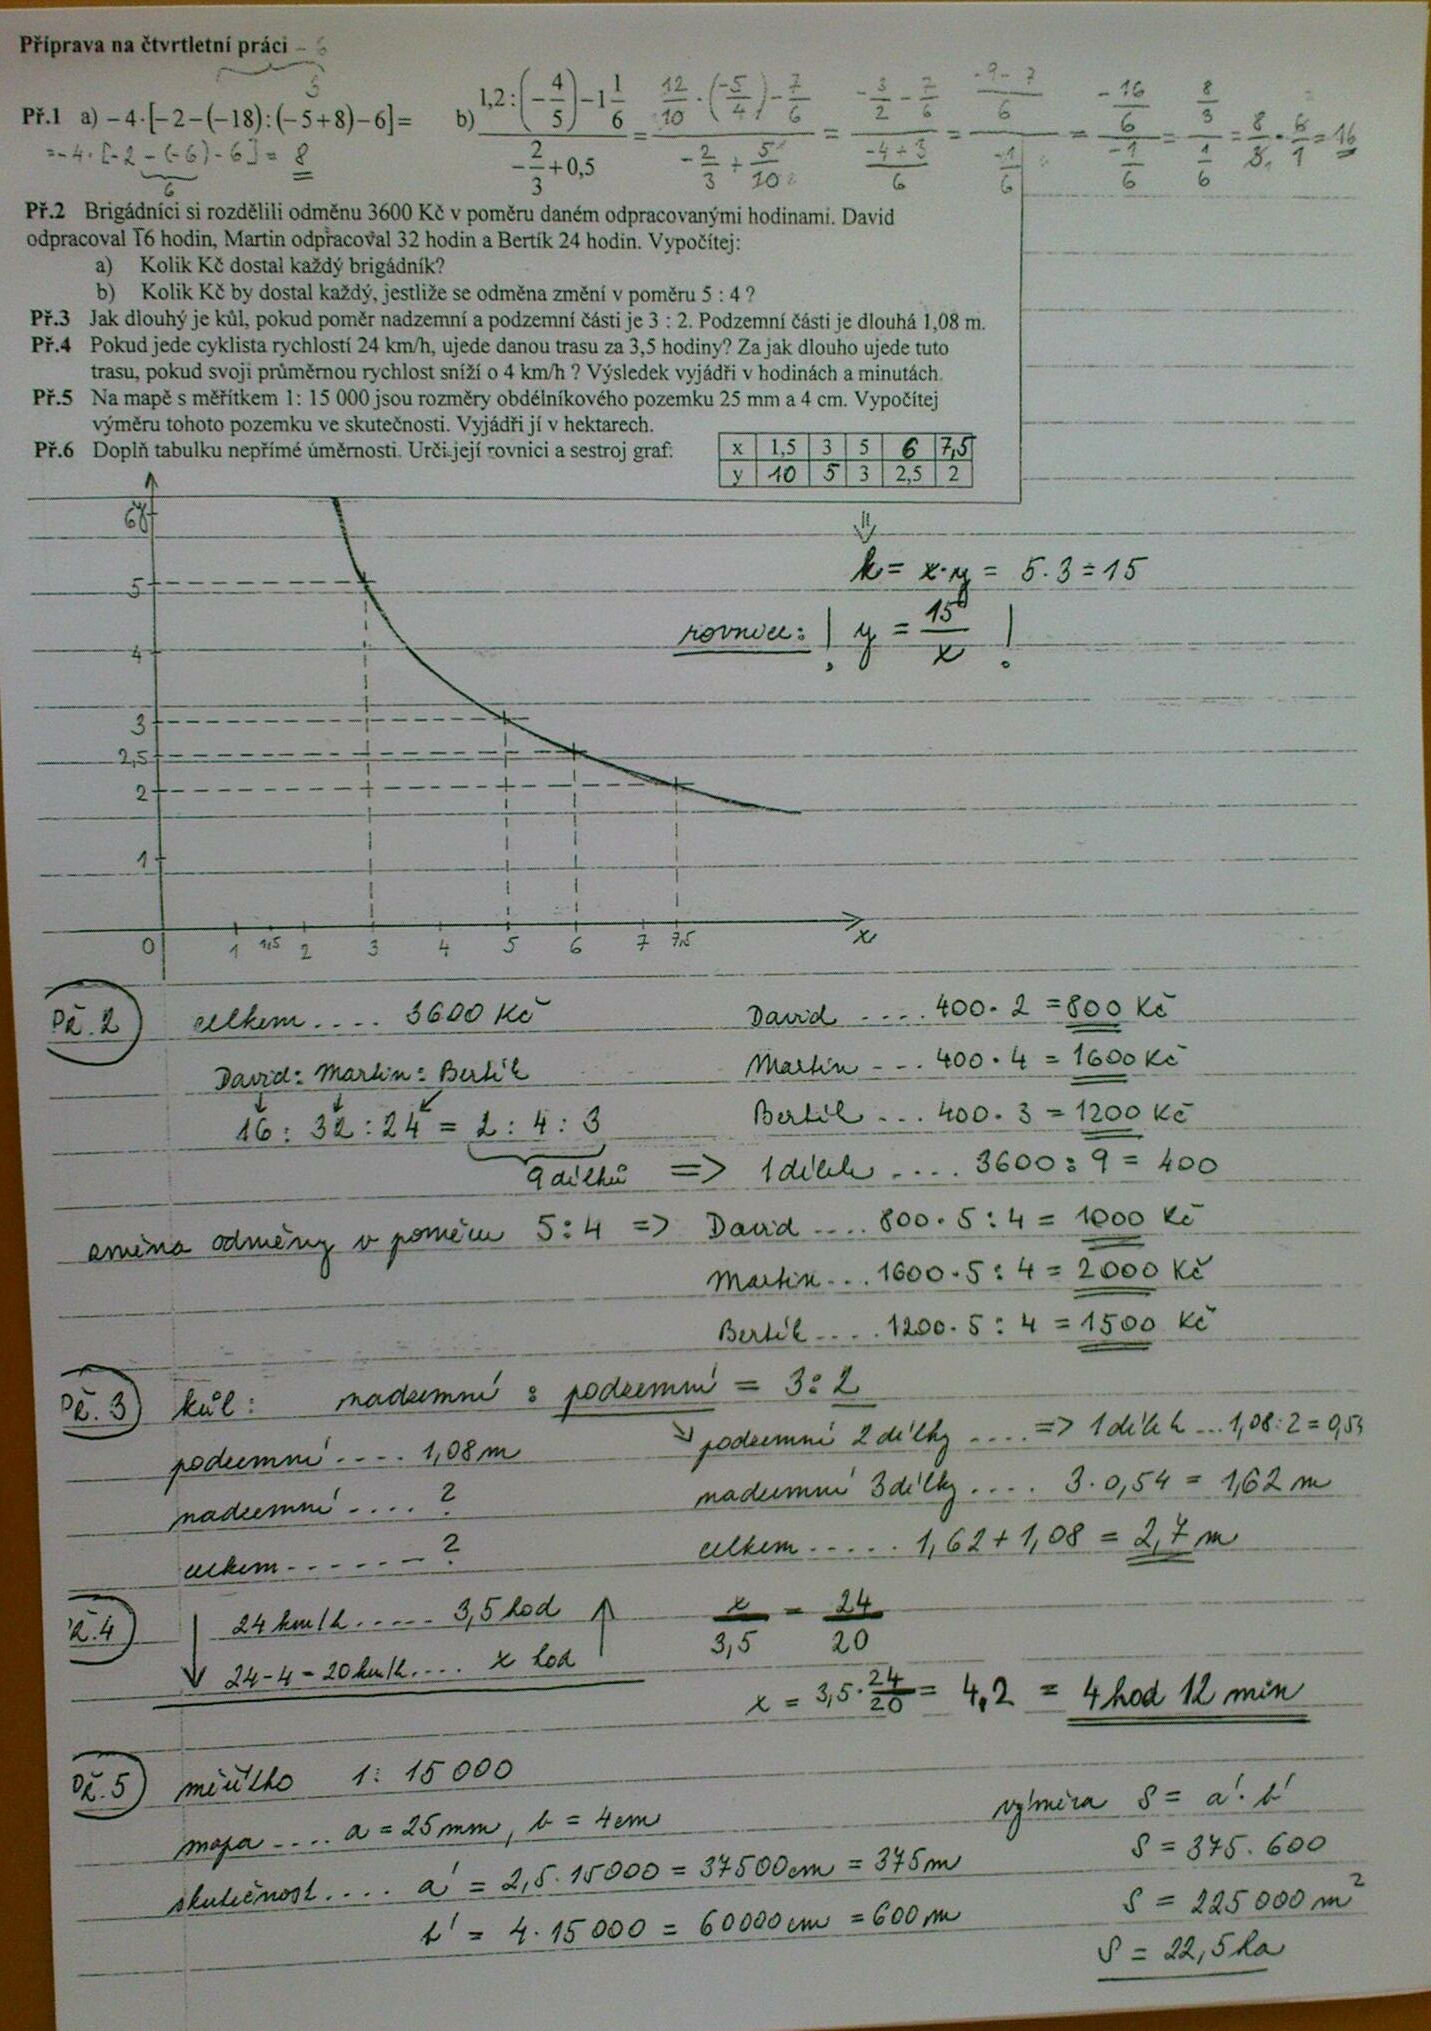 Příprava na čtvrtletní práci
- 6
3
Př.1 a) −4·[−2−(−18):(−5+8)−6]=
= -4 · [-2 - (-6) - 6] = 8
6
b) (1,2 : (−4/5) − 1 1/6) / (−2/3 + 0,5) = (12/10 · (-5/4) - 7/6) / (-2/3 + 5/10) = (-3/2 - 7/6) / ((-4+3)/6) = ((-9-7)/6) / (-1/6) = (-16/6) / (-1/6) = (8/3) / (1/6) = 8/3 · 6/1 = 16
Př.2 Brigádníci si rozdělili odměnu 3600 Kč v poměru daném odpracovanými hodinami. David
odpracoval 16 hodin, Martin odpracoval 32 hodin a Bertík 24 hodin. Vypočítej:
a) Kolik Kč dostal každý brigádník?
b) Kolik Kč by dostal každý, jestliže se odměna změní v poměru 5 : 4 ?
Př.3 Jak dlouhý je kůl, pokud poměr nadzemní a podzemní části je 3 : 2. Podzemní části je dlouhá 1,08 m.
Př.4 Pokud jede cyklista rychlostí 24 km/h, ujede danou trasu za 3,5 hodiny? Za jak dlouho ujede tuto
trasu, pokud svoji průměrnou rychlost sníží o 4 km/h ? Výsledek vyjádři v hodinách a minutách.
Př.5 Na mapě s měřítkem 1: 15 000 jsou rozměry obdélníkového pozemku 25 mm a 4 cm. Vypočítej
výměru tohoto pozemku ve skutečnosti. Vyjádři jí v hektarech.
Př.6 Doplň tabulku nepřímé úměrnosti. Urči její rovnici a sestroj graf:
x 1,5 3 5 6 7,5
y 10 5 3 2,5 2
k = x·y = 5·3 = 15
rovnice: ! y = 15/x !
6 y
5
4
3
2,5
2
1
0 1 1,5 2 3 4 5 6 7 7,5 x
Př.2 celkem .... 3600 Kč
David : Martin : Bertík
16 : 32 : 24 = 2 : 4 : 3
9 dílků => 1 dílek .... 3600 : 9 = 400
David .... 400 · 2 = 800 Kč
Martin ... 400 · 4 = 1600 Kč
Bertík ... 400 · 3 = 1200 Kč
změna odměny v poměru 5 : 4 => David .... 800 · 5 : 4 = 1000 Kč
Martin ... 1600 · 5 : 4 = 2000 Kč
Bertík .... 1200 · 5 : 4 = 1500 Kč
Př.3 kůl: nadzemní : podzemní = 3 : 2
podzemní .... 1,08 m
nadzemní .... ?
celkem ...... ?
podzemní 2 dílky .... => 1 dílek ... 1,08 : 2 = 0,54
nadzemní 3 dílky .... 3 · 0,54 = 1,62 m
celkem ..... 1,62 + 1,08 = 2,7 m
ř.4 24 km/h ..... 3,5 hod
24 - 4 = 20 km/h .... x hod
x/3,5 = 24/20
x = 3,5 · 24/20 = 4,2 = 4 hod 12 min
Př.5 měřítko 1 : 15 000
mapa .... a = 25 mm, b = 4 cm
skutečnost .... a' = 2,5 · 15 000 = 37500 cm = 375 m
b' = 4 · 15 000 = 60000 cm = 600 m
výměra S = a' · b'
S = 375 · 600
S = 225 000 m²
S = 22,5 ha